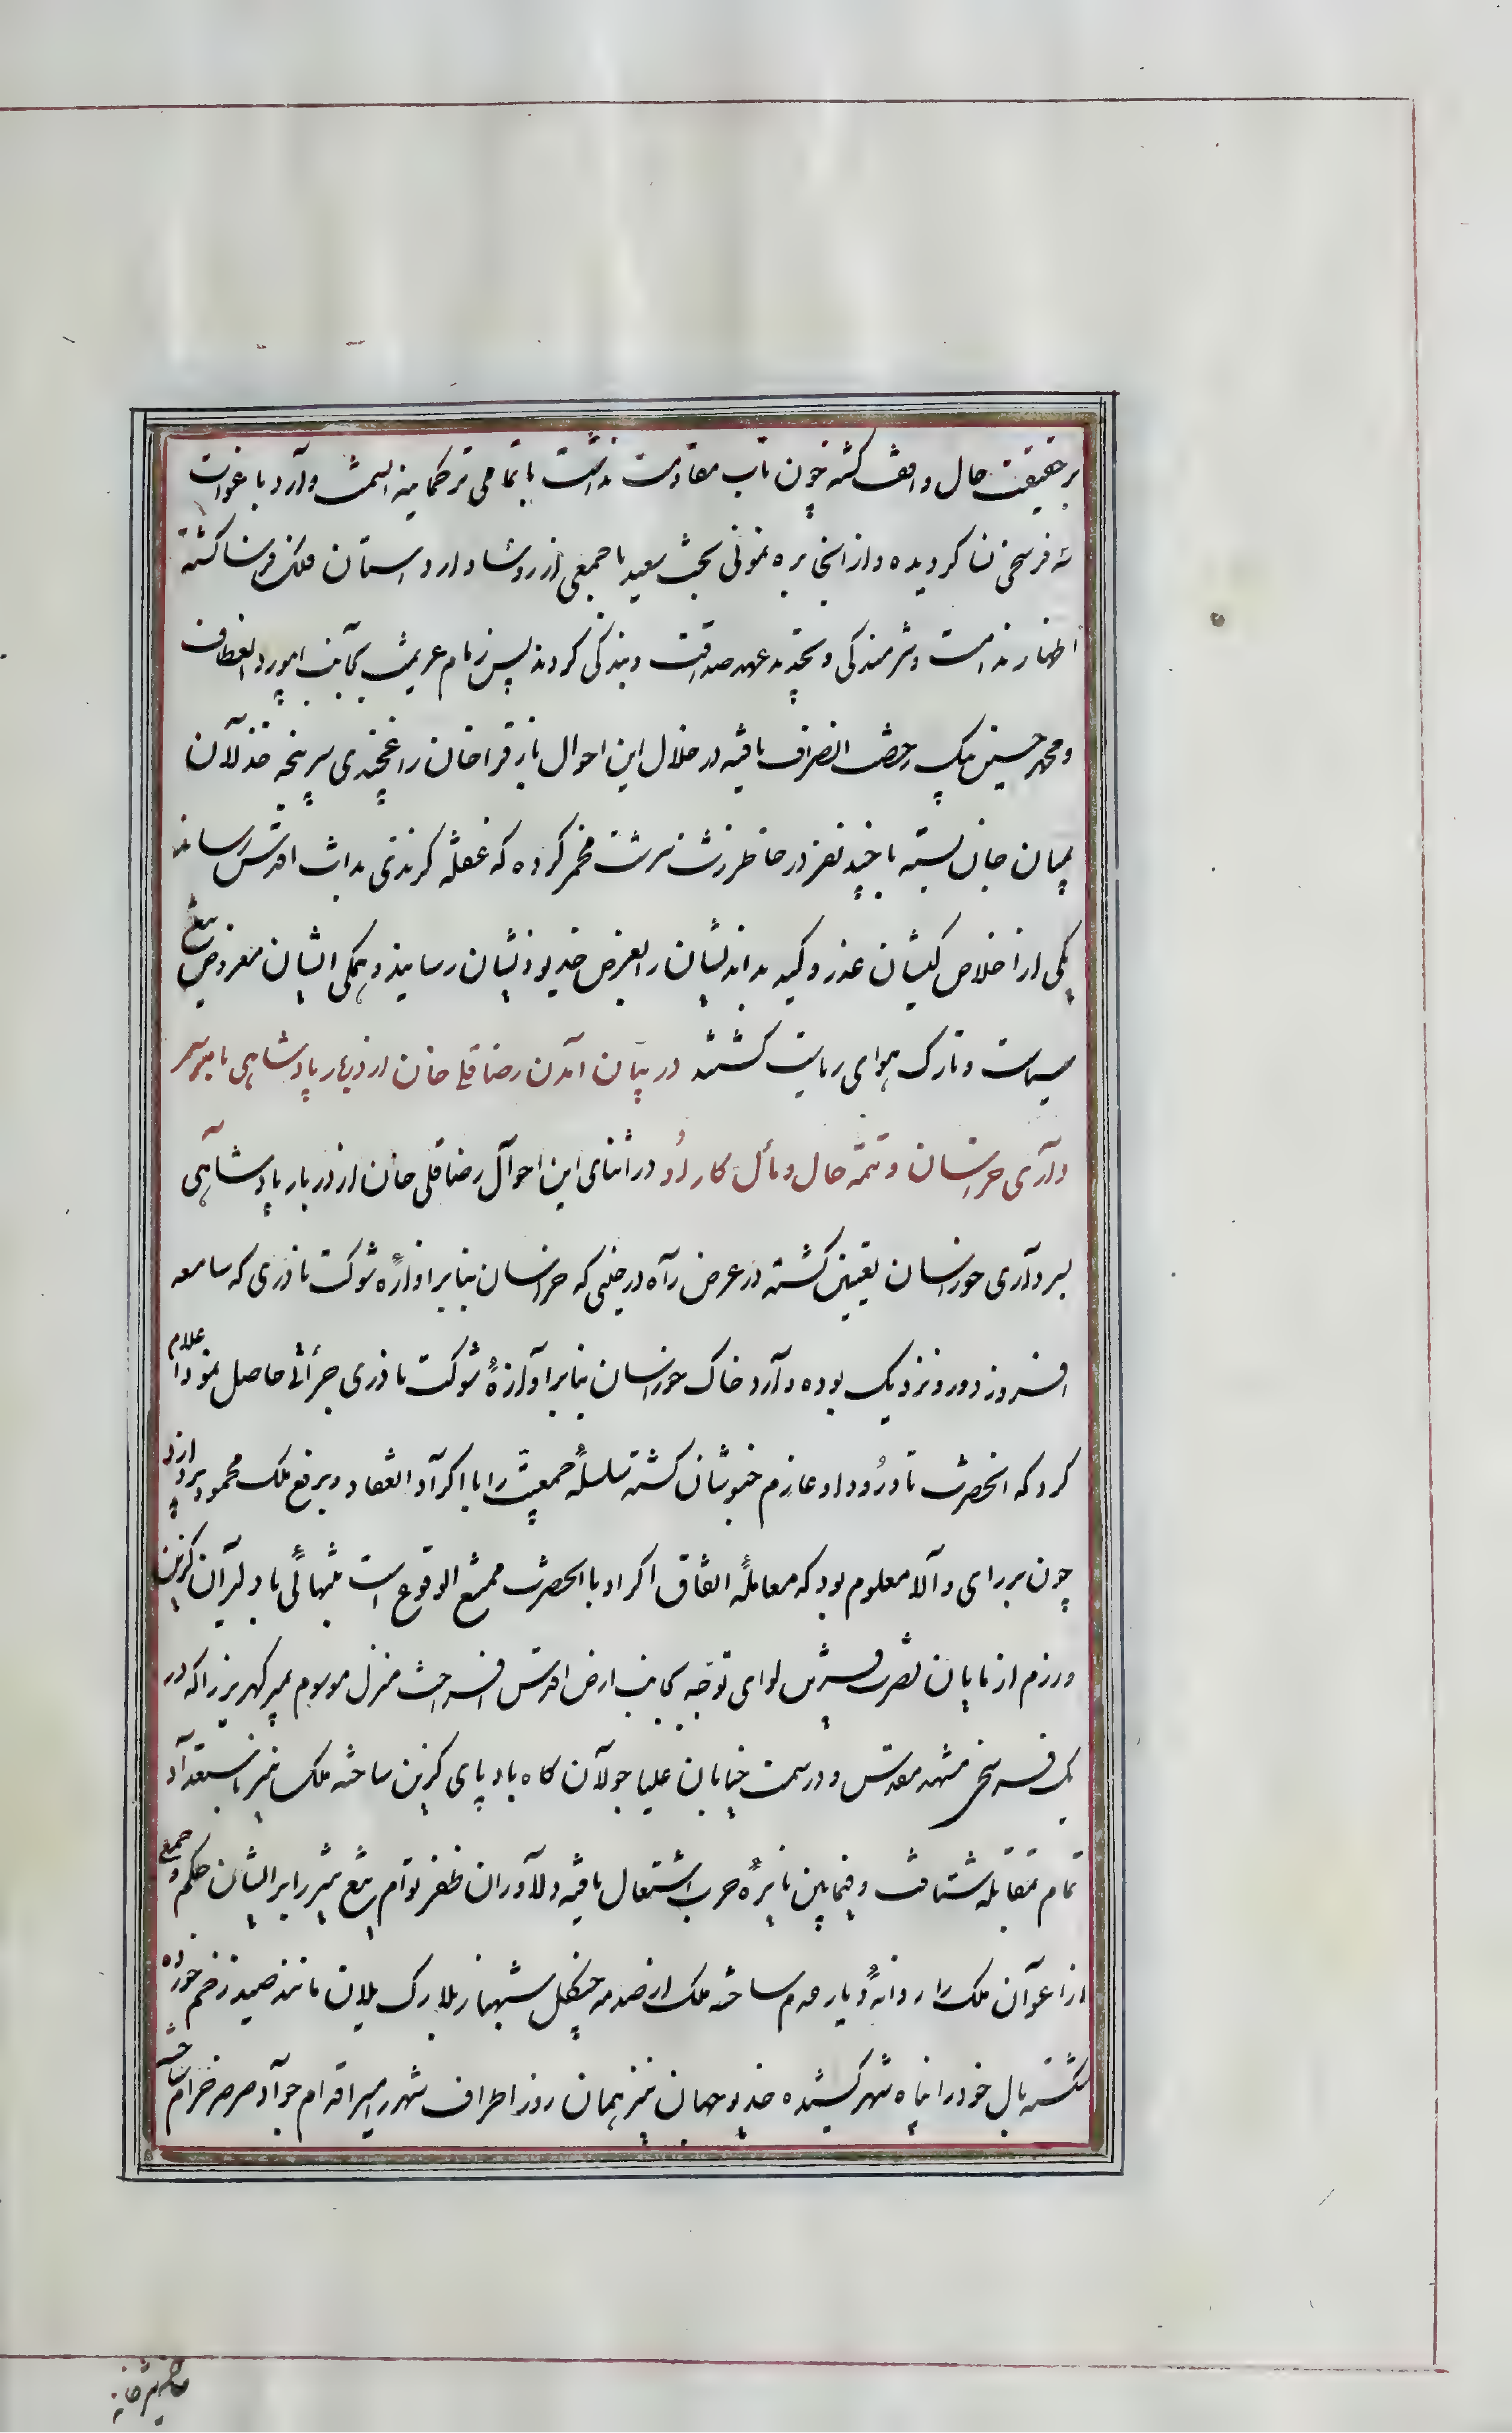 بر حقیقت حال واقف کشته چون تاب مقاومت نداشت با تمامی ترکمانیه السمت وارد باغواث
سه فرسخی نسا کردیده و از انجا بره نمونی بخت سعید با جمعی از روسا وارد استان فلک فرسا کشته
اظهار ندامت و شرمندکی و تجدید عهد صداقت و بندکی کردند پس زمام عزیمت بجانب ابیورد انعطاف
و محمد حسین بیک رخصت انصراف یافته در خلال این احوال باز قراخان راغچندی سر پنجه خذلان
پیمان جان بسته با چند نفر در خاطر زشت سرشت مخمر کرده که غفلة کزندی بذات اقدس رساند
یکی از اخلاص کیشان غدر و کید بداندیشان را بعرض خدیو ذیشان رسانید و همکی ایشان معروض تیغ
سیاست و تارک هوای ریاست کشتند در بیان آمدن رضا قلی خان از دربار پادشاهی بامر سر
داری خراسان و تتمه حال و مأل کار او در اثنای این احوال رضا قلی خان از دربار پادشاهی
بسرداری خوراسان تعیین کشته در عرض راه در حینی که خراسان بنابر اوازهٔ شوکت نادری که سامعه
افسروز دور و نزدیک بوده وارد خاک خوراسان بنابر اوازهٔ شوکت نادری جرأتی حاصل نمود اعلام
کرد که انحضرت تا ورود او عازم خبوشان کشته سلسلهٔ جمعیت را با اکراد انعقاد و برفع ملک محمود پردازند
چون بر رای والا معلوم بود که معاملهٔ اتفاق اکراد با انحضرت ممتنع الوقوع است بتنهائی با دلیران کزین
و رزم ازمایان نصرت قرین لوای توجه بجانب ارض اقدس افراخت منزل موسوم بمیر کهریز را که در
یک فرسخی مشهد مقدس و در سمت خیابان علیا جولان کاه باد پای کزین ساخته ملک نیز باستعداد
تمام بمقابله شتافت و فیمابین نایرهٔ حرب اشتعال یافته دلاوران ظفر توام تیغ تیز را بر ایشان حکم و جمعی
از اعوان ملک را روانهٔ دیار عدم ساخته ملک از صدمه چنکل شهباز بلارک یلان مانند صید زخم خورده
شکسته بال خود را بپناه شهر کشیده خدیو جهان نیز همان روز اطراف شهر را سیر اقدام جواد صرصر خرام ساخته